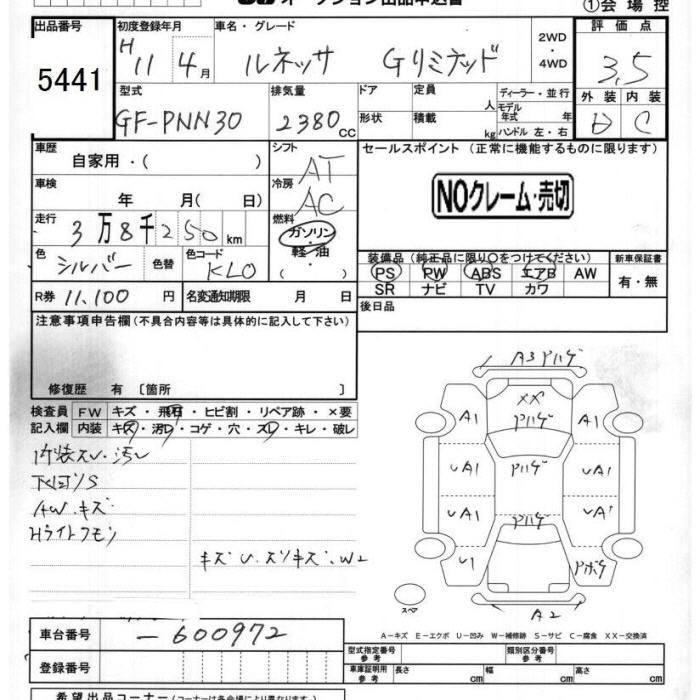 オークション出品申込書
①会場控
出品番号
5441
初度登録年月
H11 4月
車名・グレード
ルネッサ Gリミテッド
2WD・4WD
評価点
3.5
型式
GF-PNN30
排気量
2380cc
ドア
形状
定員 人
積載 kg
ディーラー・並行
モデル年式 年
ハンドル 左・右
外装 内装
D C
車歴
自家用・( )
シフト
AT
セールスポイント(正常に機能するものに限ります)
車検
年 月( 日)
冷房
AC
NOクレーム・売切
走行
3万8千250km
燃料
ガソリン・軽油
色
シルバー
色替
色コード
KL0
装備品(純正品に限り○をつけてください)
PS PW ABS エアB AW
SR ナビ TV カワ
新車保証書
有・無
R券 11,100円
名変通知期限 月 日
後日品
注意事項申告欄(不具合内容等は具体的に記入して下さい)
修復歴 有〔箇所 〕
検査員記入欄
FW キズ・飛石・ヒビ割・リペア跡・×要
内装 キズ・汚れ・コゲ・穴・スレ・キレ・破レ
内装スレ・汚レ
下回りS
AW.キズ
Hライトクモリ
キズ U.スリキズ.W2
A3 アハゲ
XX
アハゲ
A1 A1
UA1 アハゲ UA1
UA1 アハゲ UA1
U1 アボケ
スペア
A2
A−キズ E−エクボ U−凹み W−補修跡 S−サビ C−腐食 XX−交換済
車台番号
−600972
登録番号
型式指定番号 参考
類別区分番号 参考
車庫証明用 参考
長さ cm 幅 cm 高さ cm
希望出品コーナー(コーナーは各会場により異なります)